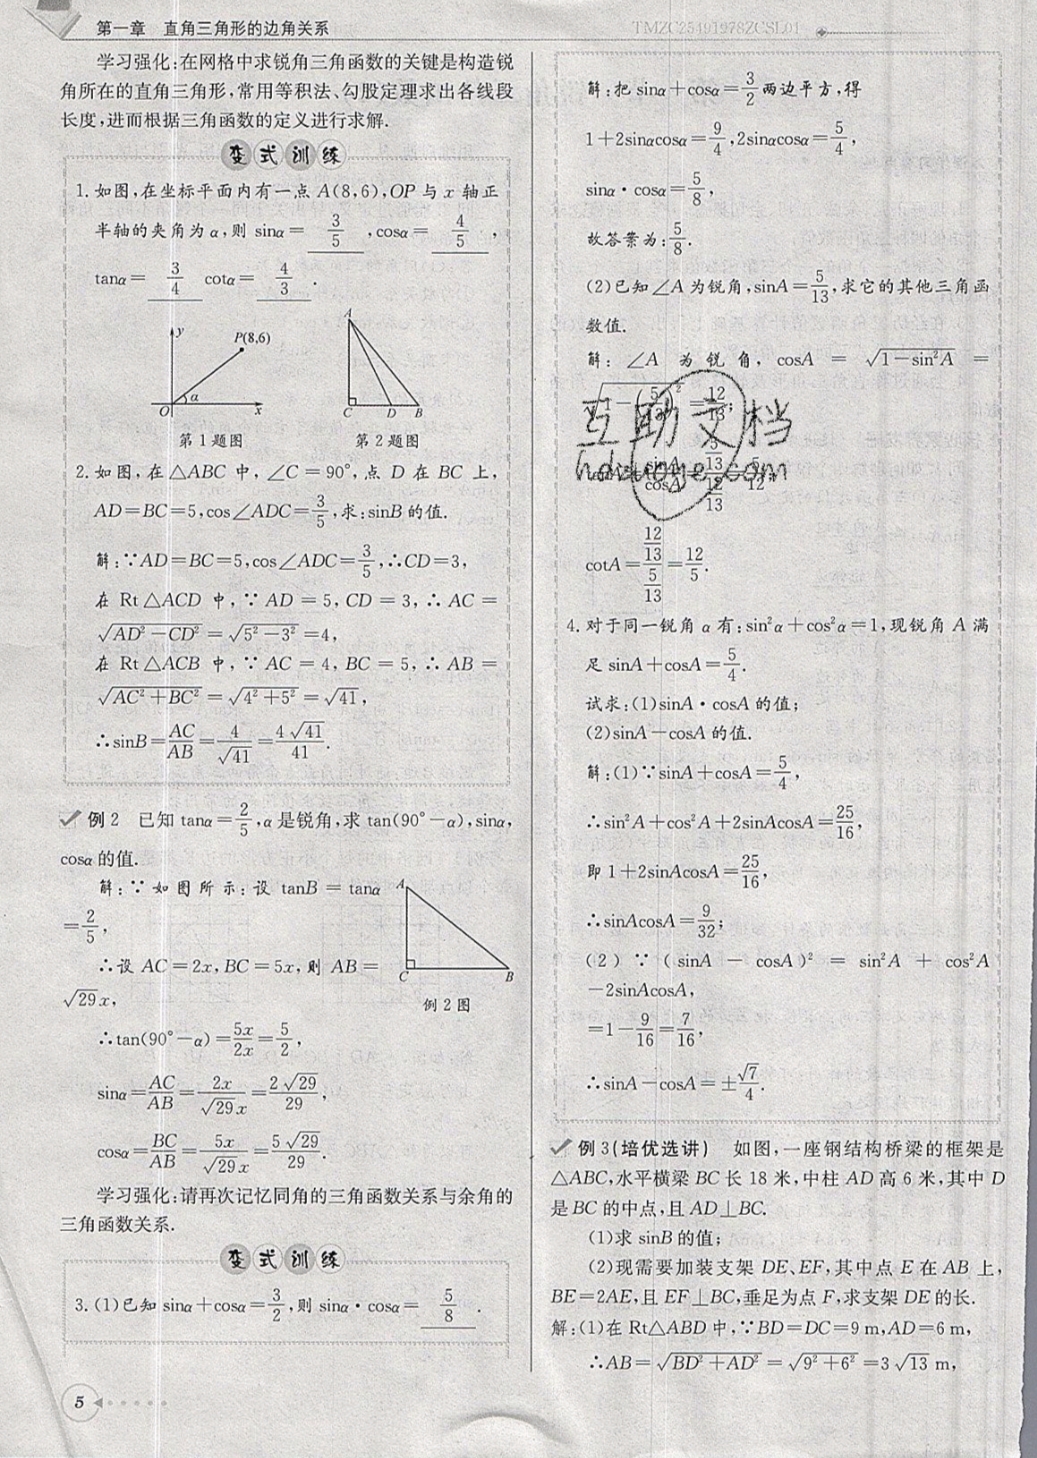 第一章 直角三角形的边角关系
TMZC25401978ZCSL01
学习强化:在网格中求锐角三角函数的关键是构造锐
角所在的直角三角形,常用等积法、勾股定理求出各线段
长度,进而根据三角函数的定义进行求解.
变式训练
1. 如图,在坐标平面内有一点 A(8,6),OP 与 x 轴正
半轴的夹角为 α,则 sinα= 3/5 ,cosα= 4/5 ,
tanα= 3/4 cotα= 4/3 .
y P(8,6) O α x
A C D B
第 1 题图 第 2 题图
2. 如图,在△ABC 中,∠C=90°,点 D 在 BC 上,
AD=BC=5,cos∠ADC=3/5,求:sinB 的值.
解:∵AD=BC=5,cos∠ADC=3/5,∴CD=3,
在 Rt△ACD 中,∵AD=5,CD=3,∴AC=
√(AD²-CD²)=√(5²-3²)=4,
在 Rt△ACB 中,∵AC=4,BC=5,∴AB=
√(AC²+BC²)=√(4²+5²)=√41,
∴sinB=AC/AB=4/√41=4√41/41.
例 2 已知 tanα=2/5,α是锐角,求 tan(90°-α),sinα,
cosα 的值.
解:∵如图所示:设 tanB=tanα
=2/5,
∴设 AC=2x,BC=5x,则 AB=
√29x,
A C B
例 2 图
∴tan(90°-α)=5x/2x=5/2,
sinα=AC/AB=2x/√29x=2√29/29,
cosα=BC/AB=5x/√29x=5√29/29.
学习强化:请再次记忆同角的三角函数关系与余角的
三角函数关系.
变式训练
3. (1)已知 sinα+cosα=3/2,则 sinα·cosα= 5/8 .
5
解:把 sinα+cosα=3/2两边平方,得
1+2sinαcosα=9/4,2sinαcosα=5/4,
sinα·cosα=5/8,
故答案为:5/8.
(2)已知∠A 为锐角,sinA=5/13,求它的其他三角函
数值.
解:∠A 为锐角,cosA=√(1-sin²A)=
√(1-(5/13)²)=12/13;
互助文档
hduoge.com
sinA/cosA=(5/13)/(12/13)=5/12
cotA=(12/13)/(5/13)=12/5.
4. 对于同一锐角 α 有:sin²α+cos²α=1,现锐角 A 满
足 sinA+cosA=5/4.
试求:(1)sinA·cosA 的值;
(2)sinA-cosA 的值.
解:(1)∵sinA+cosA=5/4,
∴sin²A+cos²A+2sinAcosA=25/16,
即 1+2sinAcosA=25/16,
∴sinAcosA=9/32;
(2)∵(sinA-cosA)²=sin²A+cos²A
-2sinAcosA,
=1-9/16=7/16,
∴sinA-cosA=±√7/4.
例 3(培优选讲) 如图,一座钢结构桥梁的框架是
△ABC,水平横梁 BC 长 18 米,中柱 AD 高 6 米,其中 D
是 BC 的中点,且 AD⊥BC.
(1)求 sinB 的值;
(2)现需要加装支架 DE、EF,其中点 E 在 AB 上,
BE=2AE,且 EF⊥BC,垂足为点 F,求支架 DE 的长.
解:(1)在 Rt△ABD 中,∵BD=DC=9 m,AD=6 m,
∴AB=√(BD²+AD²)=√(9²+6²)=3√13 m,